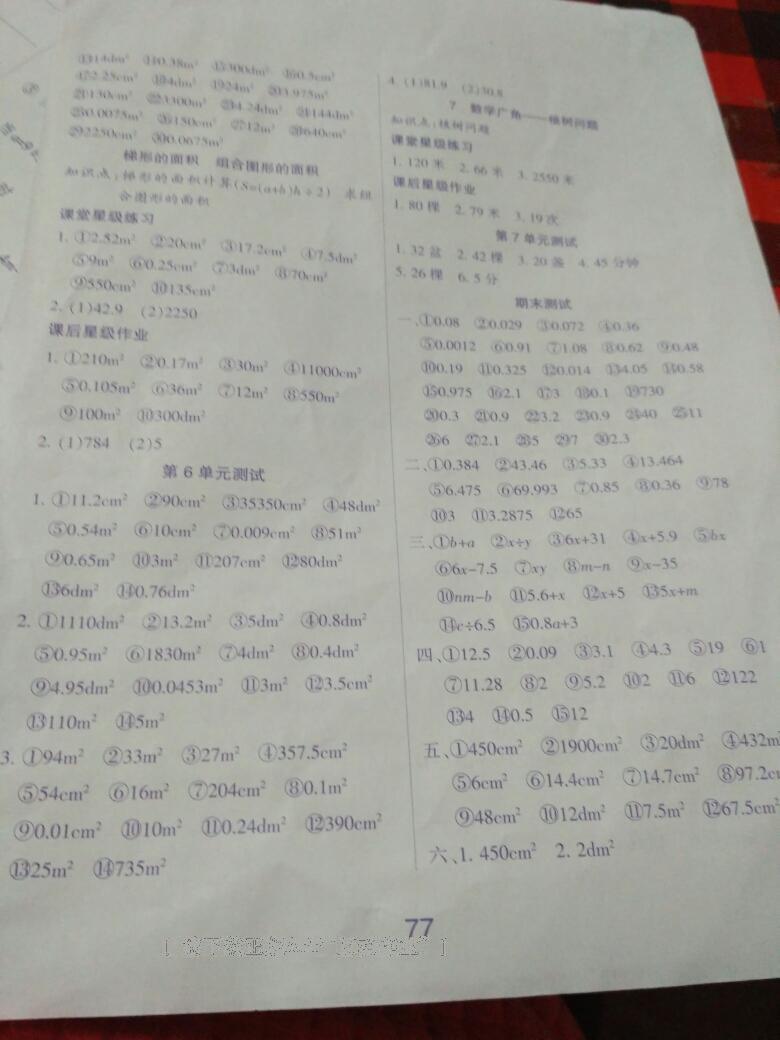 ⑬14dm² ⑭0.38m² ⑮300dm² ⑯0.5cm²
⑰2.25cm² ⑱4dm² ⑲24m² ⑳3.975m²
㉑130cm² ㉒3300m² ㉓4.24dm² ㉔144dm²
㉕0.0075m² ㉖150cm² ㉗12m² ㉘640cm²
㉙2250cm² ㉚0.0675m²
梯形的面积 组合图形的面积
知识点:梯形的面积计算(S=(a+b)h÷2) 求组
合图形的面积
课堂星级练习
1. ①2.52m² ②20cm² ③17.2cm² ④7.5dm²
⑤9m² ⑥0.25cm² ⑦3dm² ⑧70cm²
⑨550cm² ⑩135cm²
2. (1)42.9 (2)2250
课后星级作业
1. ①210m² ②0.17m² ③30m² ④11000cm²
⑤0.105m² ⑥36m² ⑦12m² ⑧550m²
⑨100m² ⑩300dm²
2. (1)784 (2)5
第6单元测试
1. ①11.2cm² ②90cm² ③35350cm² ④48dm²
⑤0.54m² ⑥10cm² ⑦0.009cm² ⑧51m²
⑨0.65m² ⑩3m² ⑪207cm² ⑫80dm²
⑬6dm² ⑭0.76dm²
2. ①1110dm² ②13.2m² ③5dm² ④0.8dm²
⑤0.95m² ⑥1830m² ⑦4dm² ⑧0.4dm²
⑨4.95dm² ⑩0.0453m² ⑪3m² ⑫3.5cm²
⑬110m² ⑭5m²
3. ①94m² ②33m² ③27m² ④357.5cm²
⑤54cm² ⑥16m² ⑦204cm² ⑧0.1m²
⑨0.01cm² ⑩10m² ⑪0.24dm² ⑫390cm²
⑬25m² ⑭735m²
4. (1)81.9 (2)30.8
7 数学广角——植树问题
知识点:植树问题
课堂星级练习
1. 120米 2. 66米 3. 2550米
课后星级作业
1. 80棵 2. 79米 3. 19次
第7单元测试
1. 32盆 2. 42棵 3. 20盏 4. 45分钟
5. 26棵 6. 5分
期末测试
一、①0.08 ②0.029 ③0.072 ④0.36
⑤0.0012 ⑥0.91 ⑦1.08 ⑧0.62 ⑨0.48
⑩0.19 ⑪0.325 ⑫0.014 ⑬4.05 ⑭0.58
⑮0.975 ⑯2.1 ⑰3 ⑱0.1 ⑲730
⑳0.3 ㉑0.9 ㉒3.2 ㉓0.9 ㉔40 ㉕11
㉖6 ㉗2.1 ㉘5 ㉙7 ㉚2.3
二、①0.384 ②43.46 ③5.33 ④13.464
⑤6.475 ⑥69.993 ⑦0.85 ⑧0.36 ⑨78
⑩3 ⑪3.2875 ⑫65
三、①b+a ②x÷y ③6x+31 ④x+5.9 ⑤bx
⑥6x-7.5 ⑦xy ⑧m-n ⑨x-35
⑩nm-b ⑪5.6+x ⑫x+5 ⑬5x+m
⑭c÷6.5 ⑮0.8a+3
四、①12.5 ②0.09 ③3.1 ④4.3 ⑤19 ⑥1
⑦11.28 ⑧2 ⑨5.2 ⑩2 ⑪6 ⑫122
⑬4 ⑭0.5 ⑮12
五、①450cm² ②1900cm² ③20dm² ④432m
⑤6cm² ⑥14.4cm² ⑦14.7cm² ⑧97.2c
⑨48cm² ⑩12dm² ⑪7.5m² ⑫67.5cm²
六、1. 450cm² 2. 2dm²
77